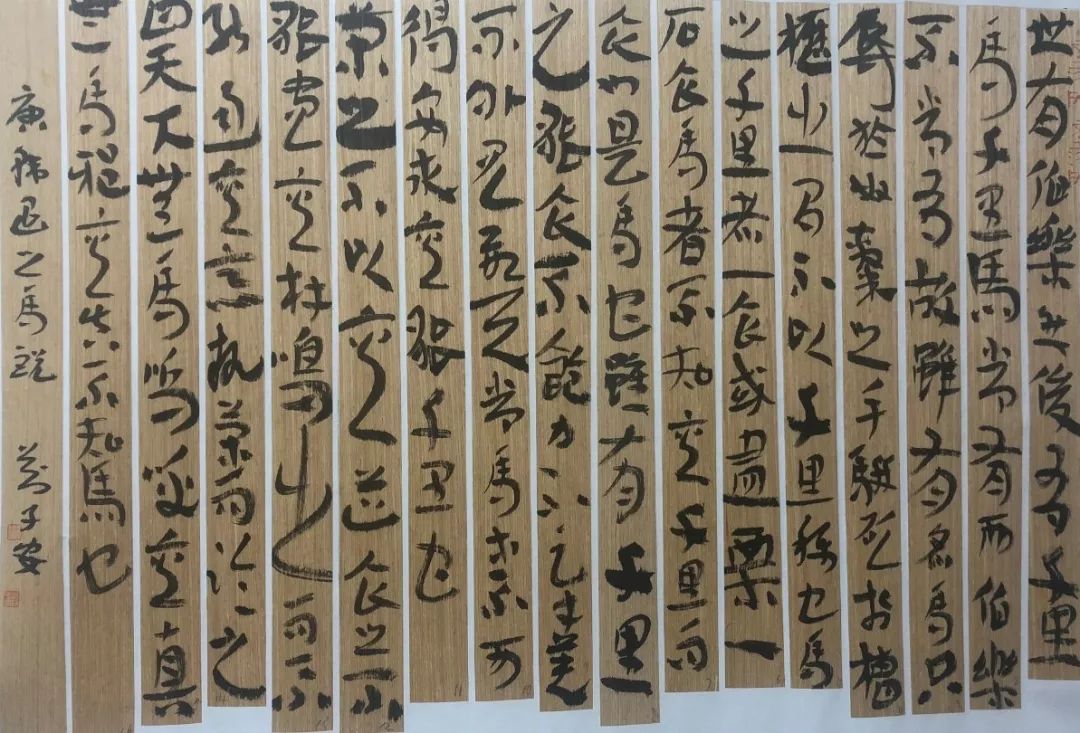 世有伯樂然後有千里
馬千里馬常有而伯樂
不常有故雖有名馬只
辱於奴隸之手駢死於槽
櫪之間不以千里稱也馬
之千里者一食或盡粟一
石食馬者不知其千里而
食也是馬也雖有千里
之能食不飽力不足才美
不外見欲與常馬等不可
得安求其能千里也
策之不以其道食之不
能盡其材鳴之而不
能通其意執策而臨之
曰天下無馬嗚呼其真
無馬邪其真不知馬也
唐韓愈之馬說 子安